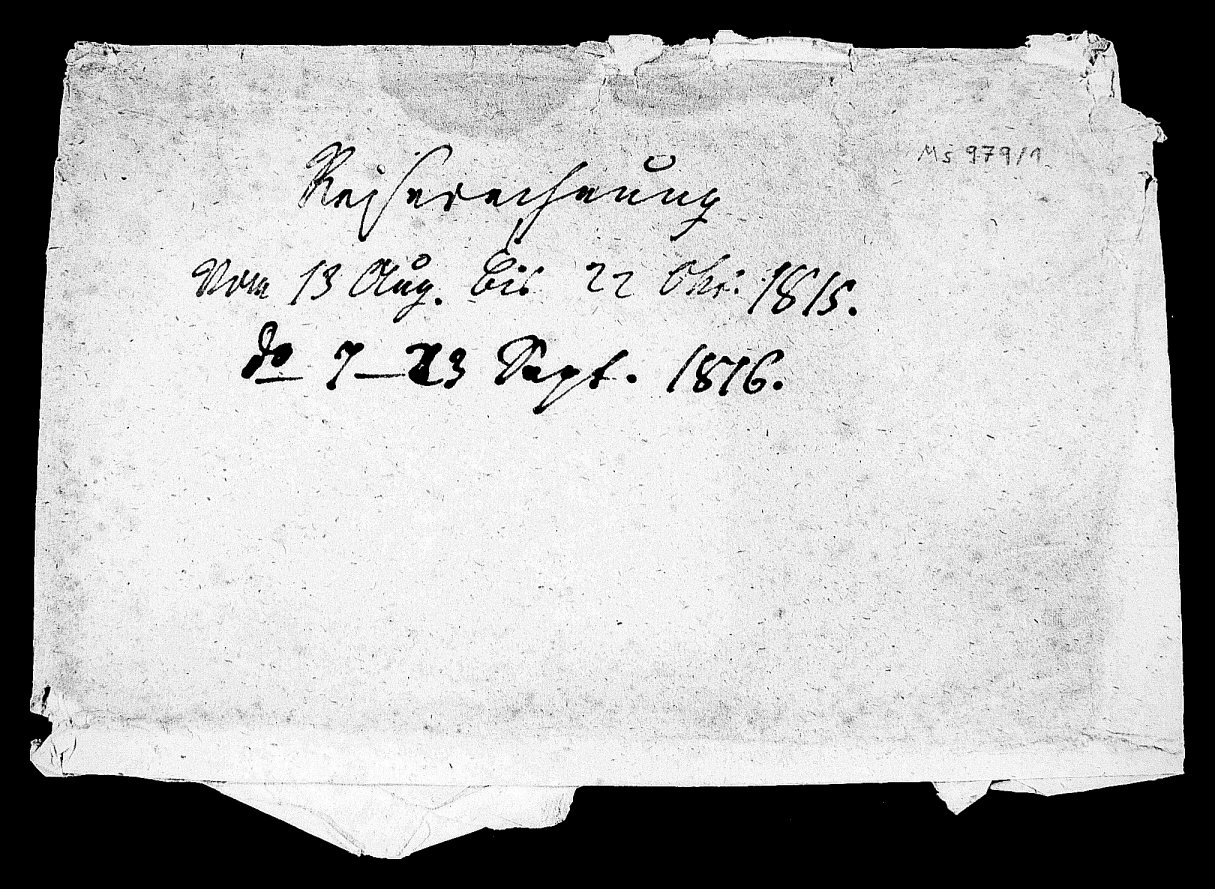 Ms 979/1
Reiserechnung
Vom 13 Aug. bis 22 Okt. 1815.
do 7 – 23 Sept. 1816.